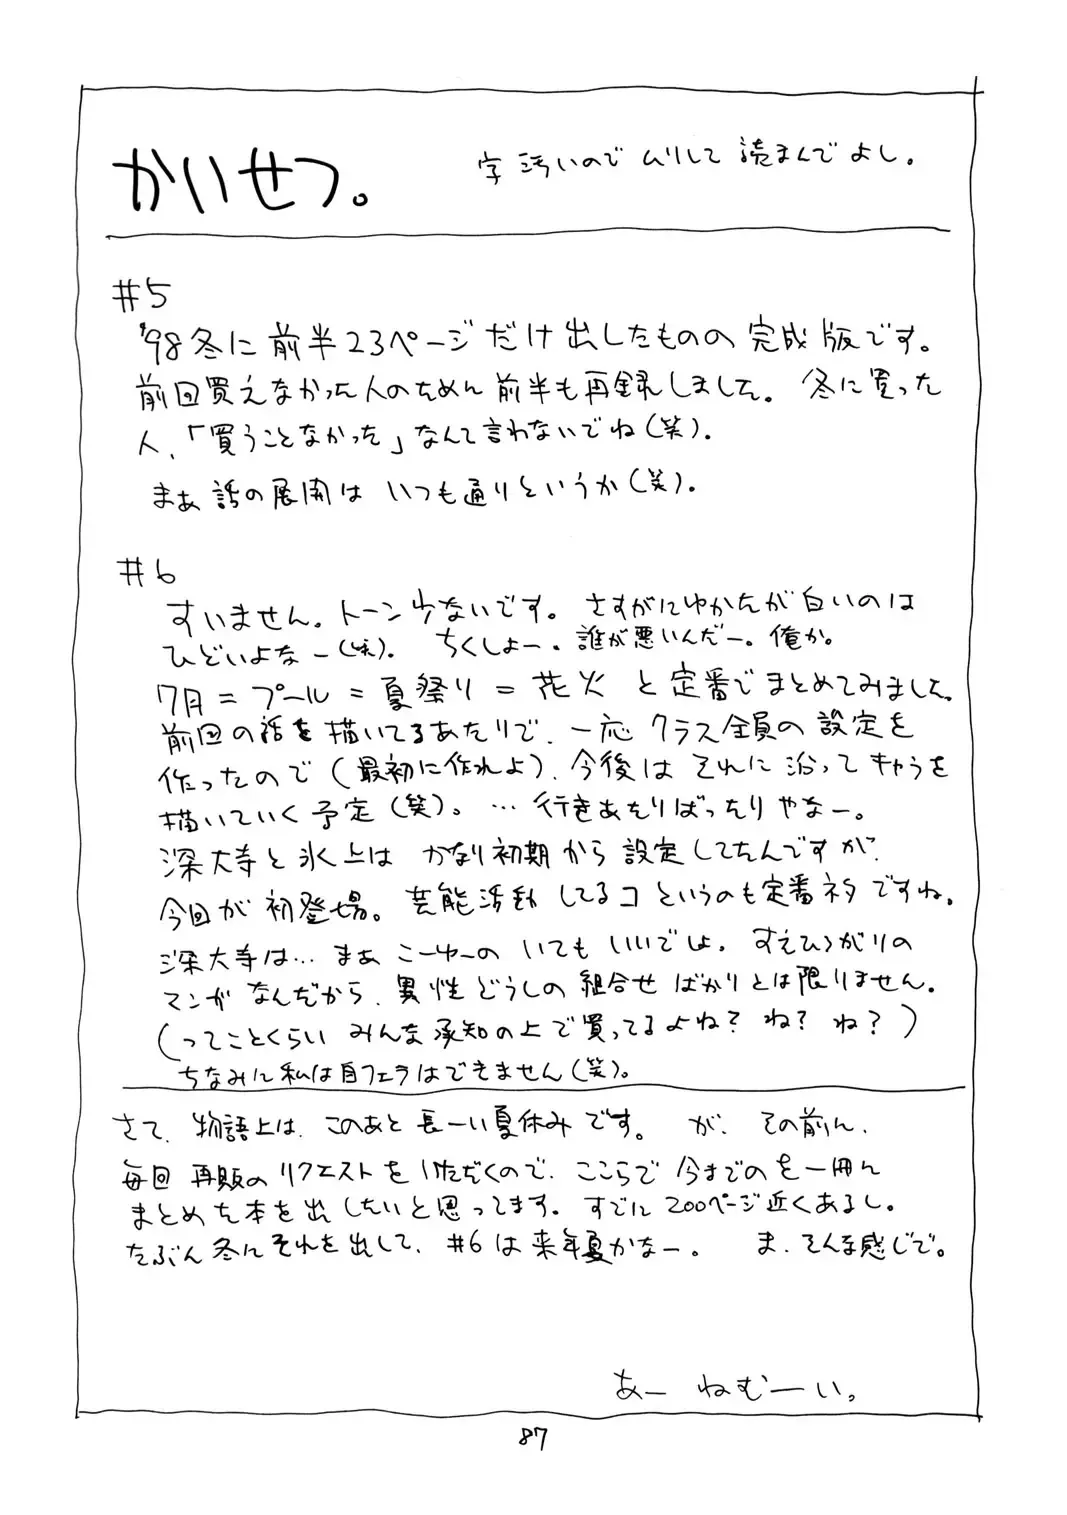 かいせつ。
字汚いのでムリして読まんでよし。
#5
'98冬に前半23ページだけ出したものの完成版です。
前回買えなかった人のために前半も再録しました。冬に買った
人、「買うことなかった」なんて言わないでね(笑)。
まあ話の展開はいつも通りというか(笑)。
#6
すいません。トーン少ないです。さすがにゆかたが白いのは
ひどいよなー(笑)。ちくしょー。誰が悪いんだー。俺か。
7月=プール=夏祭り=花火と定番でまとめてみました。
前回の話を描いてるあたりで、一応クラス全員の設定を
作ったので(最初に作れよ)、今後はそれに沿ってキャラを
描いていく予定(笑)。…行きあたりばったりやなー。
深大寺と氷上はかなり初期から設定してたんですが、
今回が初登場。芸能活動してるコというのも定番ネタですね。
深大寺は…まあこーゆーのいてもいいでしょ。すえひろがりの
マンガなんだから、男性どうしの組合せばかりとは限りません。
(ってことくらいみんな承知の上で買ってるよね?ね?ね?)
ちなみに私は自フェラはできません(笑)。
さて、物語上は、このあと長ーい夏休みです。が、その前に、
毎回再販のリクエストをいただくので、ここらで今までのを一冊に
まとめた本を出したいと思ってます。すでに200ページ近くあるし。
たぶん冬にそれを出して、#6は来年夏かなー。ま、そんな感じで。
あーねむーい。
87